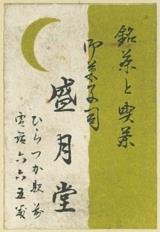 銘茶と喫茶
御菓子司
盛月堂
ひらつか駅前
電話六六五番